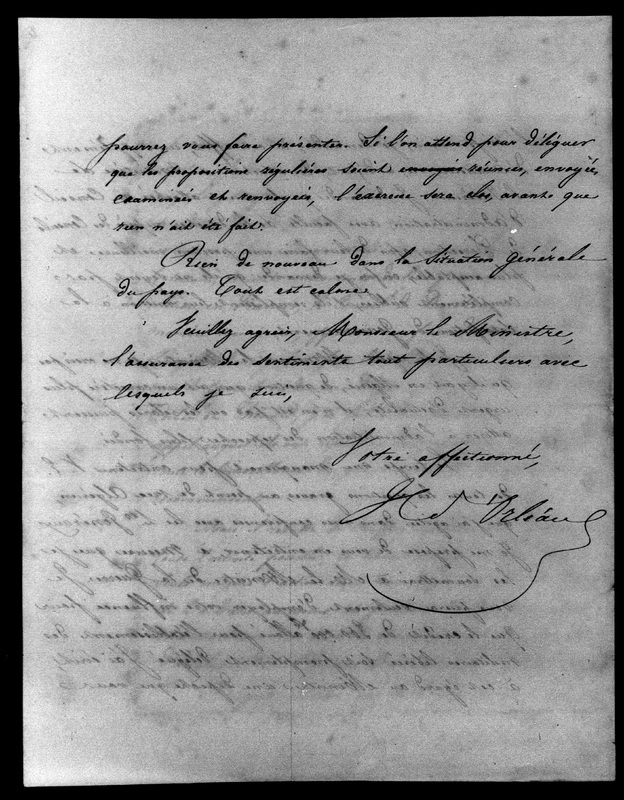 pourrez vous faire présenter. Si l'on attend pour déléguer
que les propositions régulières soient envoyées réunies, envoyées,
examinées et renvoyées, l'exercice sera clos, avant que
rien n'ait été fait.
Rien de nouveau dans la Situation générale
du pays. Tout est calme.
Veuillez agréer, Monsieur le Ministre,
l'assurance des sentiments tout particuliers avec
lesquels je suis,
Votre affectionné,
H d'Orléans